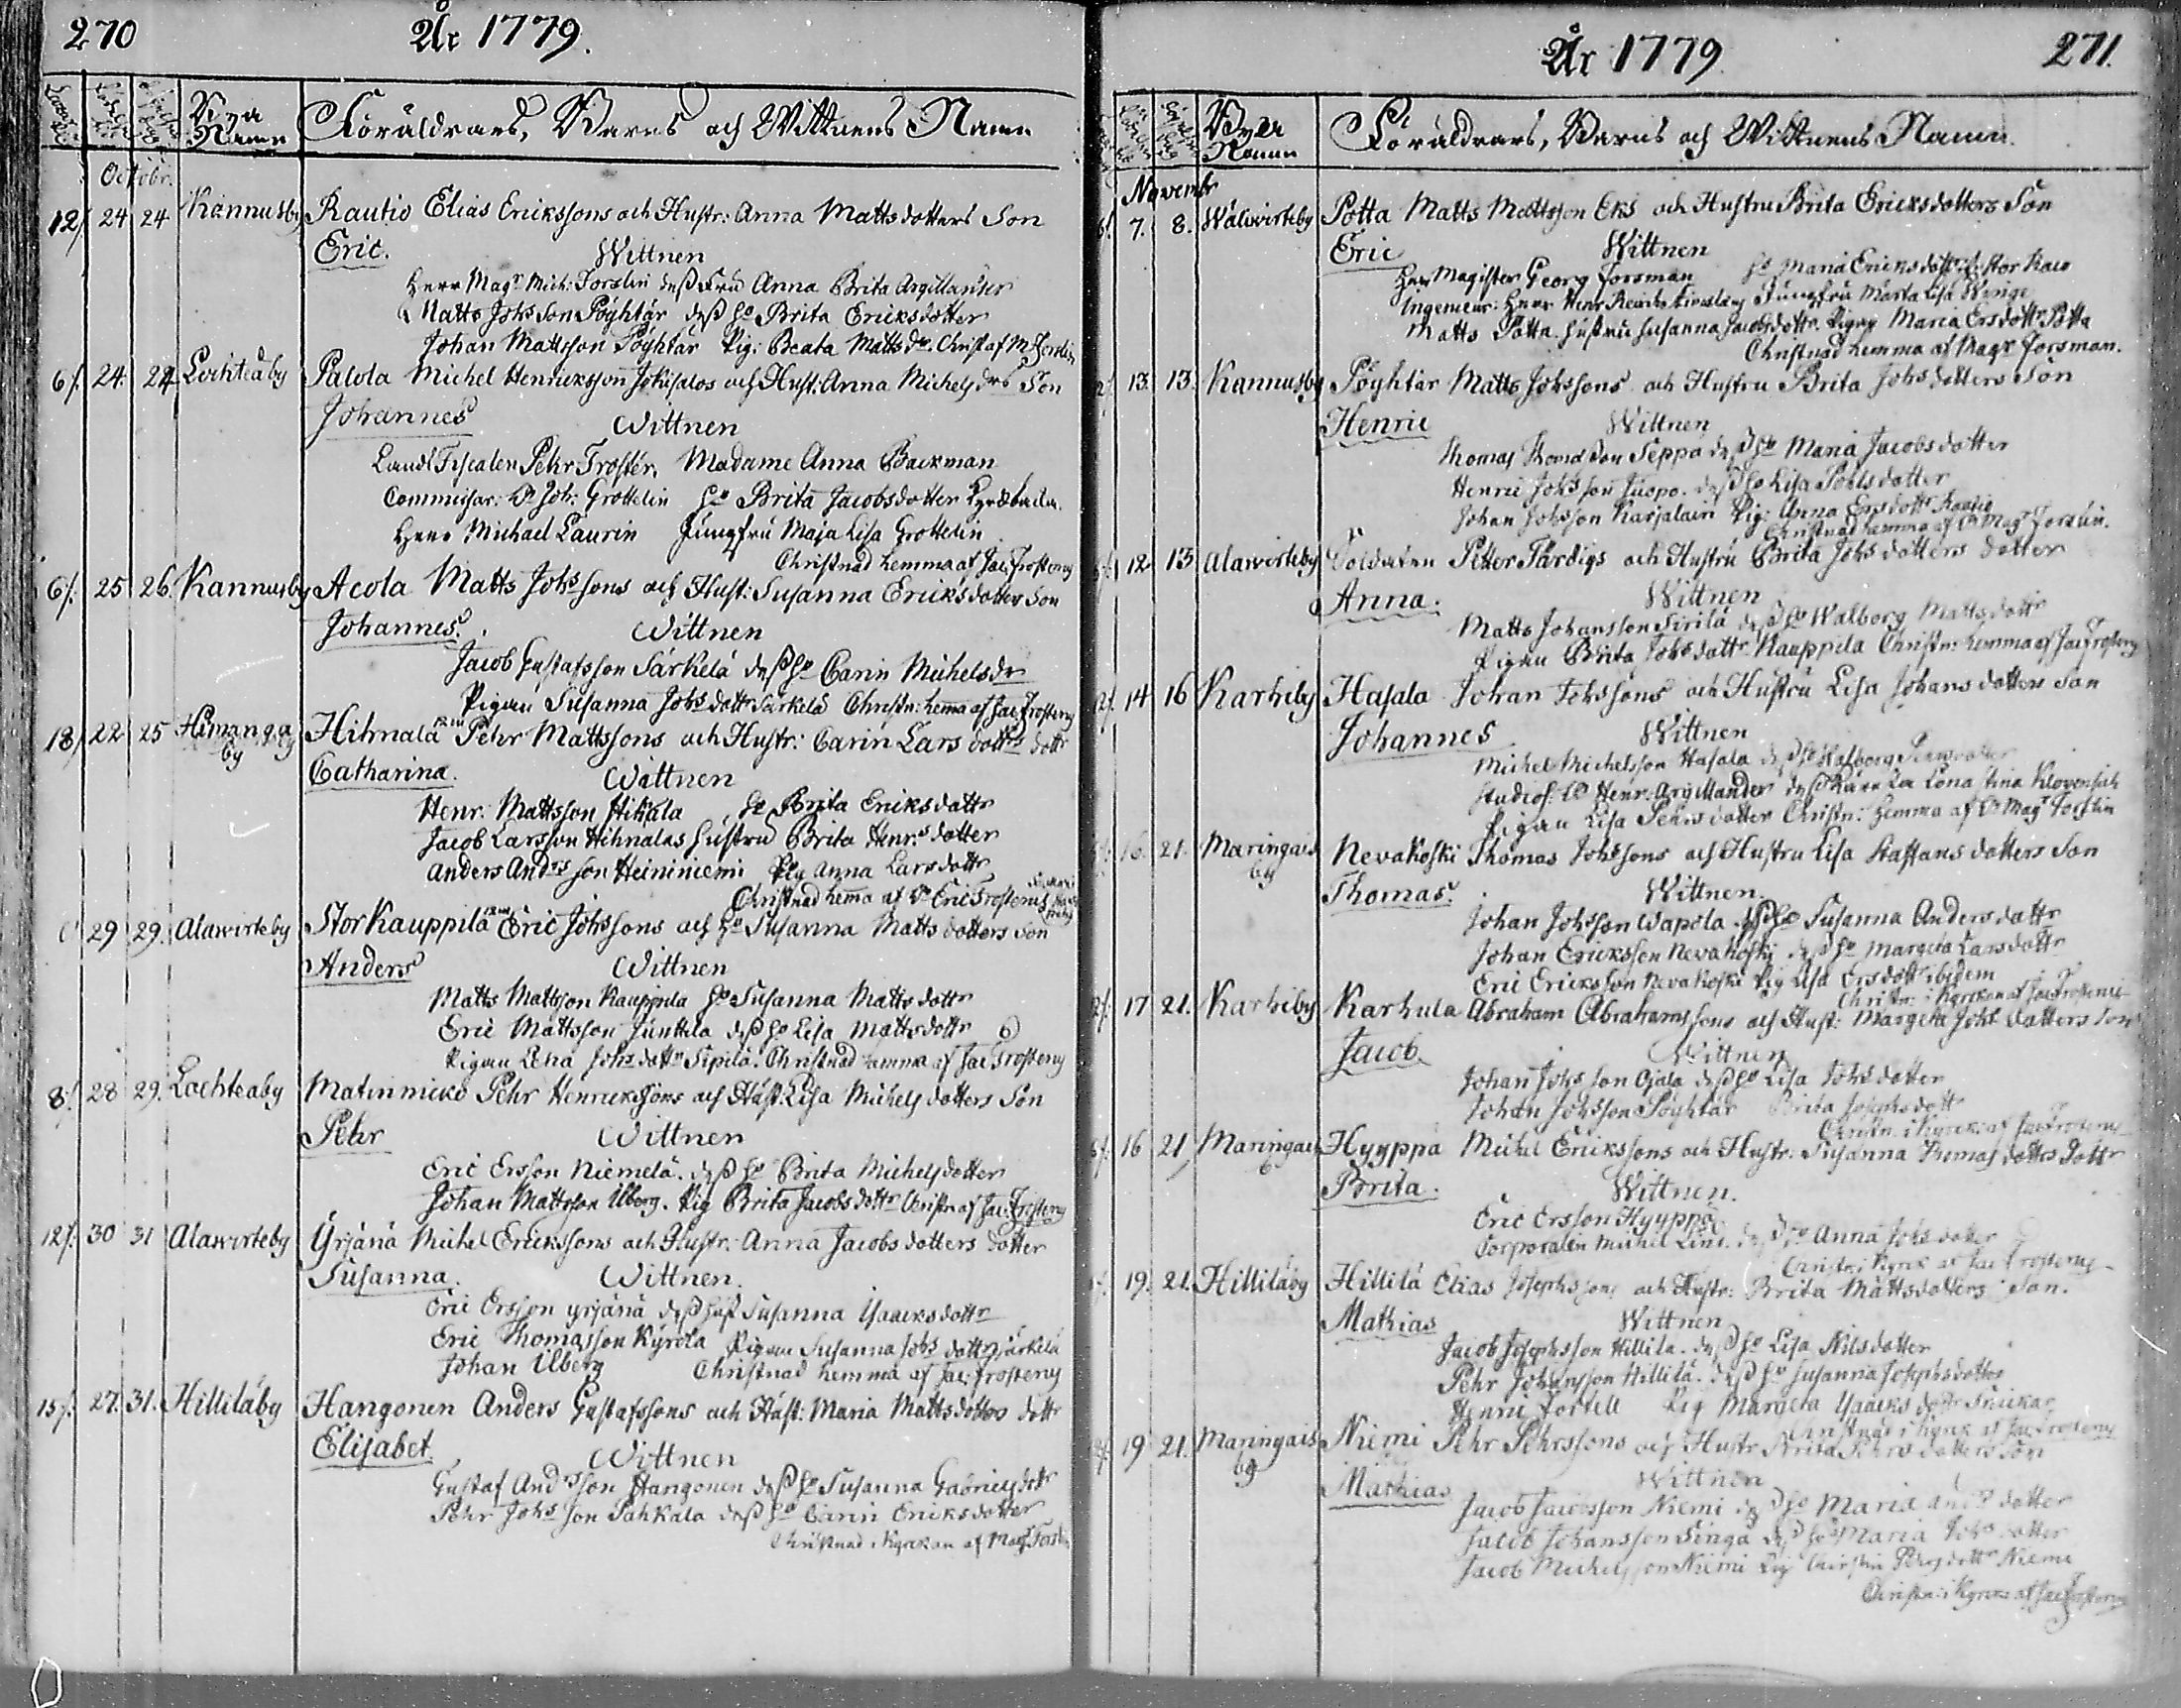 270 År 1779.
Bya Namn Föräldrars, Barns och Wittnens Namn
Octobr.
12/. 24 24 Kannusby Rautio Elias Erikssons och Hustr: Anna Mattsdotters Son
Eric. Wittnen
Herr Magr Mich: Forslin dess Fru Anna Brita Argillander
Matts Johsson Pöyhtär dess ho Brita Ericksdotter
Johan Mattsson Pöyhtär Pig: Beata Mattsdr. Christ af M Forslin
6/. 24. 24 Lochteåby Palola Michel Henricksson Jokisalos och Hust: Anna Michelsdrs Son
Johannes Wittnen
Lands Fiscalen Pehr Troster. Madame Anna Backman
Commissar: Dn Joh: Grottelin ho Brita Jacobsdotter
Herr Michael Laurin Jungfru Maja Lisa Grottelin
Christnad hemma af Jac: Frosterus
6/. 25 26. Kannusby Acola Matts Johssons och Hust: Susanna Ericksdotter Son
Johannes. Wittnen
Jacob Gustafsson Särkelä dess ho Carin Michelsdr
Pigan Susanna Johsdottr Särkelä Christn: hemma af Jac Frosterus
18/. 22 25 Himanga by Hihnala Pehr Mattssons och Hustr: Carin Larsdottrs dottr
Catharina. Wittnen
Henr. Mattsson Hikkala ho Brita Eriksdottr
Jacob Larsson Hihnalas hustru Brita Henrsdotter
Anders Andrsson Heininiemi Pig Anna Larsdottr
Christnad hemma af Dn Eric Frosterus
29 29. Alawirteby Stor Kauppila Eric Johssons och ho Susanna Mattsdotters Son
Anders Wittnen
Matts Mattsson Kauppila ho Susanna Mattsdottr
Eric Mattsson Junttila dess ho Lisa Mattsdottr
Pigan Lena Johsdottr Sipilä. Christnad hemma af Jac Frosterus
8/. 28 29. Lochteåby Matinmicko Pehr Henrickssons och Hust: Lisa Michelsdotters Son
Pehr Wittnen
Eric Ersson Niemelä. dess ho Brita Michelsdotter
Johan Mattsson Ulberg. Pig Brita Jacobsdottr Christn af Jac: Frosterus
12/. 30 31 Alawirteby Yrjänä Michel Erickssons och Hustr: Anna Jacobsdotters dotter
Susanna. Wittnen.
Eric Ersson Yrjänä dess hust Susanna Isaacksdottr
Eric Thomasson Kyrölä Pigan Susanna Johsdottr Särkelä
Johan Ulberg Christnad hemma af Jac: Frosterus
15/. 27. 31. Hilliläby Hangonen Anders Gustafssons och Hust: Maria Mattsdotters dottr
Elisabet. Wittnen
Gustaf Andrsson Hangonen dess ho Susanna Gabrielsdottr
Pehr Johsson Pahkala dess ho Carin Ericksdotter
Christnad i Kyrckan af Magr Forslin
År 1779 271.
Byar Namn Föräldrars, Barns och Wittnens Namn.
Novembr
7. 8. Wälwirteby Potta Matts Mattsson Eks och Hustru Brita Ericksdotters Son
Eric Wittnen
Herr Magister Georg Forsman ho Maria Ericksdotter
Ingenieur: Herr Jungfru Märta Lisa
Matts Potta hustru Susanna Jacobsdottr. Pigan Maria Ersdottr Potta
Christnad hemma af Magr Forsman.
13. 13. Kannusby Pöyhtär Matts Johssons och Hustru Brita Johsdotters Son
Henric Wittnen
Thomas Thomasson Seppä dess ho Maria Jacobsdotter
Henric Johsson Juopo. dess ho Lisa Påhlsdotter
Johan Johsson Karjalain Pig: Anna Ersdottr Rautio
Christnad hemma af Dn Magr Forslin.
12 13 Alawirteby Soldaten Petter Färdigs och Hustru Brita Johsdotters dotter
Anna. Wittnen
Matts Johansson Sirilä dess ho Walborg Mattsdottr
Pigan Brita Johsdottr Kauppila Christn: hemma af Jac Frosterus
14 16 Karhiby Hasala Johan Johssons och Hustru Lisa Johansdotters Son
Johannes Wittnen
Michel Michelsson Hasala dess ho Walborg
Studios: Dn Henr: Argillander
Pigan Lisa Pehrsdotter Christn: hemma af Dn Magr Forslin
16. 21. Maringais by Nevakoski Thomas Johssons och Hustru Lisa Staffansdotters Son
Thomas. Wittnen.
Johan Johsson Wapola dess ho Susanna Andersdottr
Johan Ericksson Nevakoski dess ho Margeta Larsdottr
Eric Ericksson Nevakoski Pig Lisa Ersdottr ibidem
Christn: i Kyrckan af Jac Frosterus
17 21. Karhiby Karhula Abraham Abrahamssons och Hust: Margeta Johsdotters Son
Jacob. Wittnen
Johan Johsson Ojala dess ho Lisa Johsdotter
Johan Johsson Pöyhtär Brita Josephsdottr
Christn: i Kyrck: af Jac Frosterus
16 21 Maringais by Hyyppä Michel Erickssons och Hustr. Susanna Thomasdotters dottr
Brita. Wittnen.
Eric Ersson Hyyppä
Corporalen Michel Lind. dess ho Anna Johsdotter
Christn i Kyrck af Jac Frosterus
19. 21. Hilliläby Hillilä Elias Josephssons och Hustr: Brita Mattsdotters Son.
Mathias Wittnen
Jacob Josephsson Hillilä. dess ho Lisa Nilsdotter
Pehr Johansson Hillilä. dess ho Susanna Josephsdotter
Henric Fortell Pig Margeta Isaacksdottr Snickar
Christnad i Kyrck af Jac Frosterus
19 21. Maringais by Niemi Pehr Pehrssons och Hustr Brita Pehrsdotters Son
Mathias Wittnen
Jacob Jacobsson Niemi dess ho Maria Andrsdotter
Jacob Johansson Singa dess ho Maria Johsdotter
Jacob Michelsson Niemi Pig Chirstin Pehrsdottr Niemi
Christn: i Kyrckan af Jac Frosterus